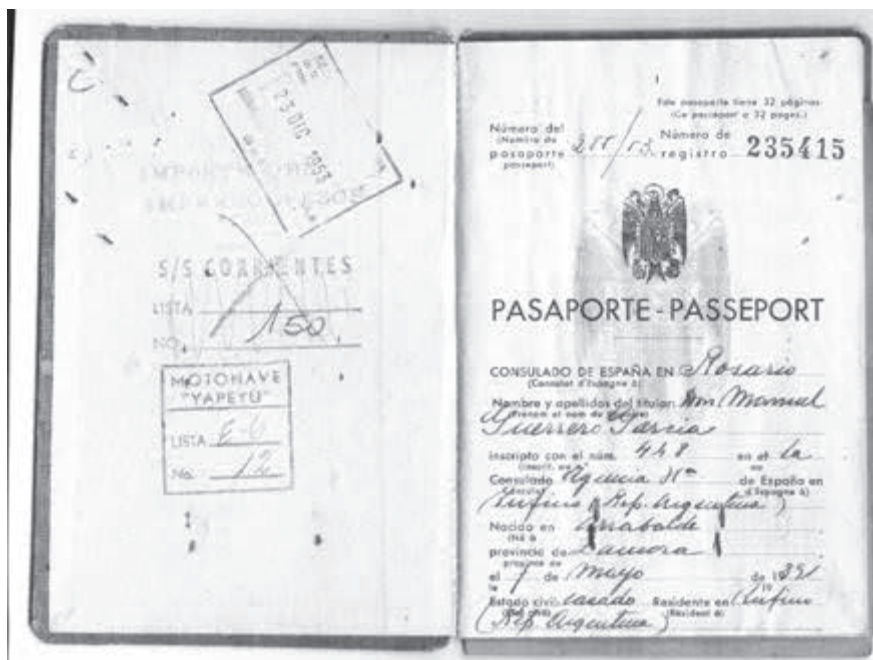 23 DIC 1953
S/S CORRIENTES
LISTA
NO. 150
MOTONAVE
"YAPEYÚ"
LISTA E-6
No. 12
Este pasaporte tiene 32 páginas
(Ce passeport a 32 pages.)
Número del
(Numéro de
pasaporte
passeport)
Número de
registro 235415
PASAPORTE - PASSEPORT
CONSULADO DE ESPAÑA EN Rosario
(Consulat d'Espagne à)
Nombre y apellidos del titular: Don Manuel
Guerrero García
Inscripto con el núm. 448 en el la
Consulado Agencia Hª de España en
d'Espagne à)
(Rufino Rep. Argentina)
Nacido en Arrabalde
(Né à
provincia de Zamora
province de
el 7 de Mayo de 19
Estado civil casado Residente en Rufino
(Résident à)
(Rep. Argentina)